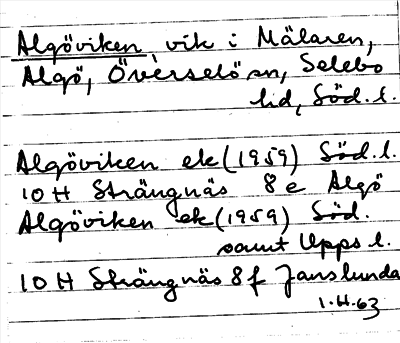 Algöviken vik i Mälaren,
Algö, Överselö sn, Selebo
hd, Söd. l.
Algöviken ek (1959) Söd. l.
10 H Strängnäs 8 e Algö
Algöviken ek (1959) Söd.
samt Upps l.
10 H Strängnäs 8 f Janslunda
1.H.63